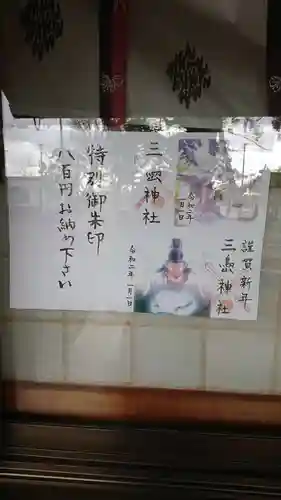 謹賀新年
三嶋神社
令和二年
一月一日
三嶋神社
令和二年 一月一日
特別御朱印
八百円お納め下さい